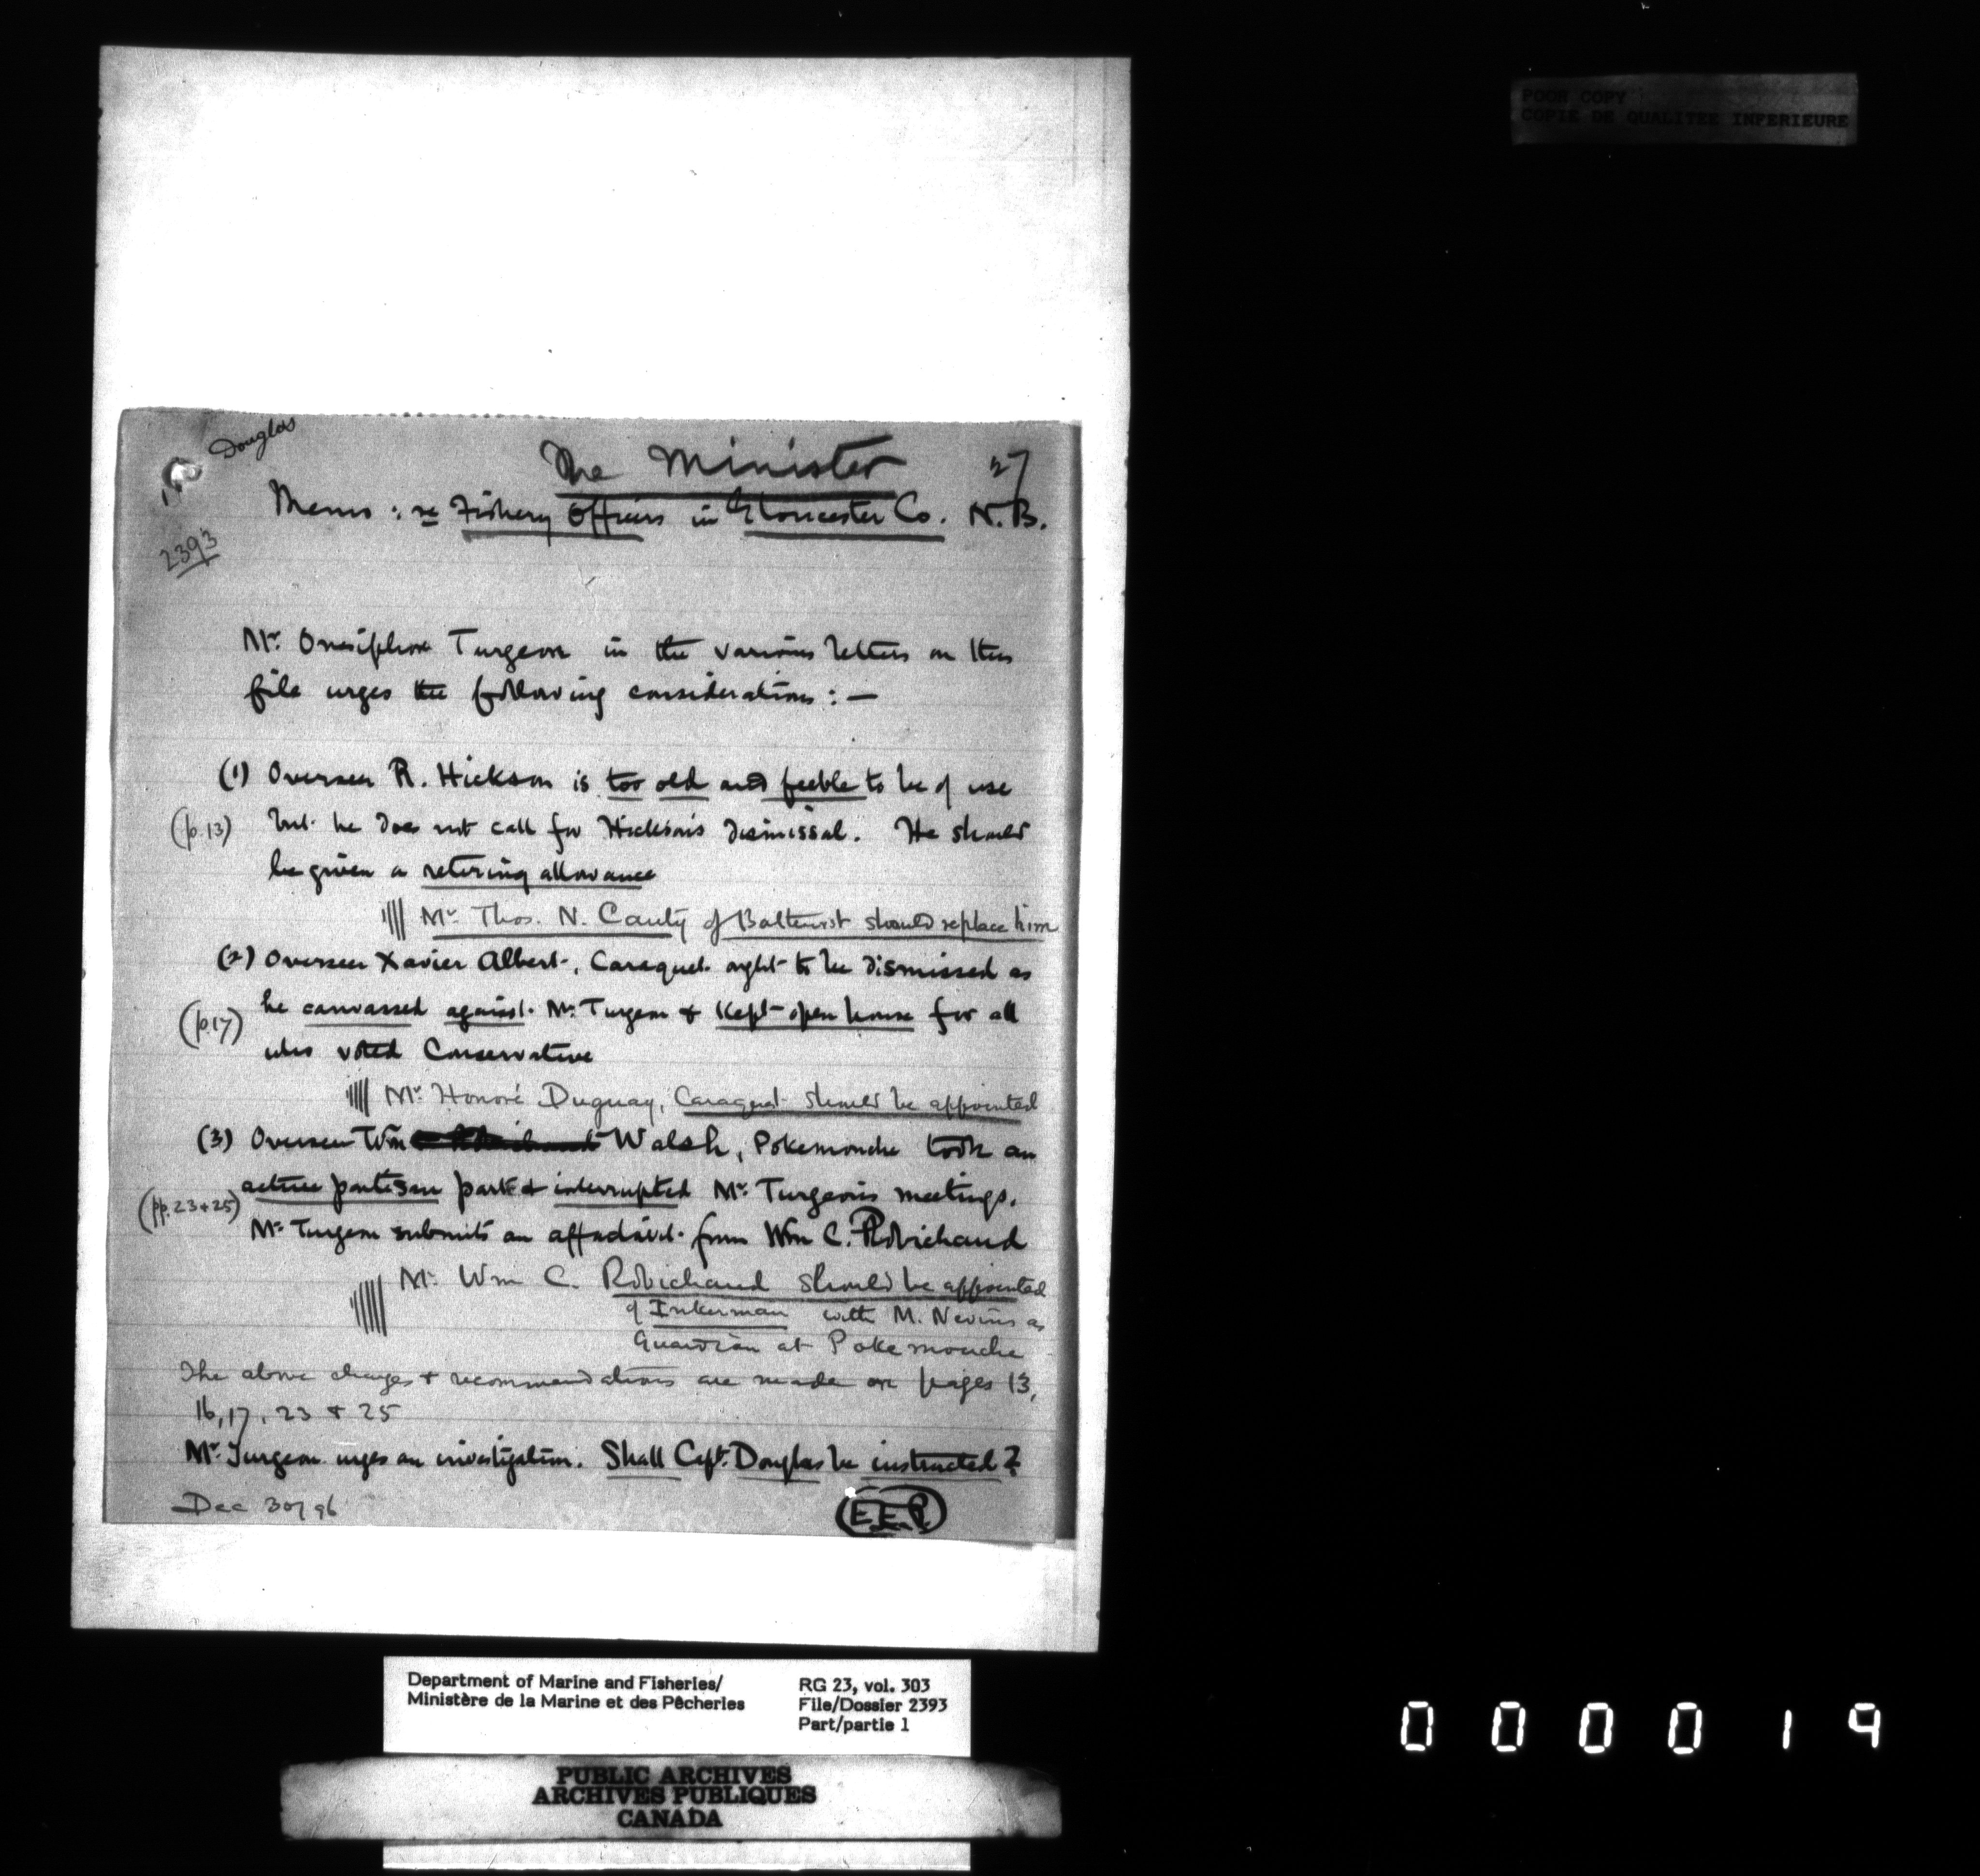 POOR COPY
COPIE DE QUALITEE INFERIEURE
Douglas
The Minister
27
Memo: re Fishery Officers in Gloucester Co. N.B.
2393
Mr. Onesiphore Turgeon in the various letters on this
file urges the following considerations:—
(1) Overseer R. Hickson is too old and feeble to be of use
(p.13) but he does not call for Hickson's dismissal. He should
be given a retiring allowance
Mr. Thos. N. Canty of Bathurst should replace him
(2) Overseer Xavier Albert, Caraquet ought to be dismissed as
he canvassed against Mr. Turgeon & kept open house for all
(p.17)
who voted Conservative
Mr. Honoré Duguay, Caraquet should be appointed
(3) Overseer Wm Walsh, Pokemouche took an
active partisan part & interrupted Mr. Turgeon's meetings.
(pp. 23 & 25)
Mr. Turgeon submits an affadavit from Wm C. Robichaud
Mr. Wm C. Robichaud should be appointed
of Inkerman with M. Nevins as
Guardian at Pokemouche
The above charges & recommendations are made on pages 13,
16, 17, 23 & 25
Mr. Turgeon urges an investigation. Shall Capt. Douglas be instructed?
Dec 30/96
E.E.P.
Department of Marine and Fisheries/
Ministère de la Marine et des Pêcheries
RG 23, vol. 303
File/Dossier 2393
Part/partie 1
PUBLIC ARCHIVES
ARCHIVES PUBLIQUES
CANADA
000019